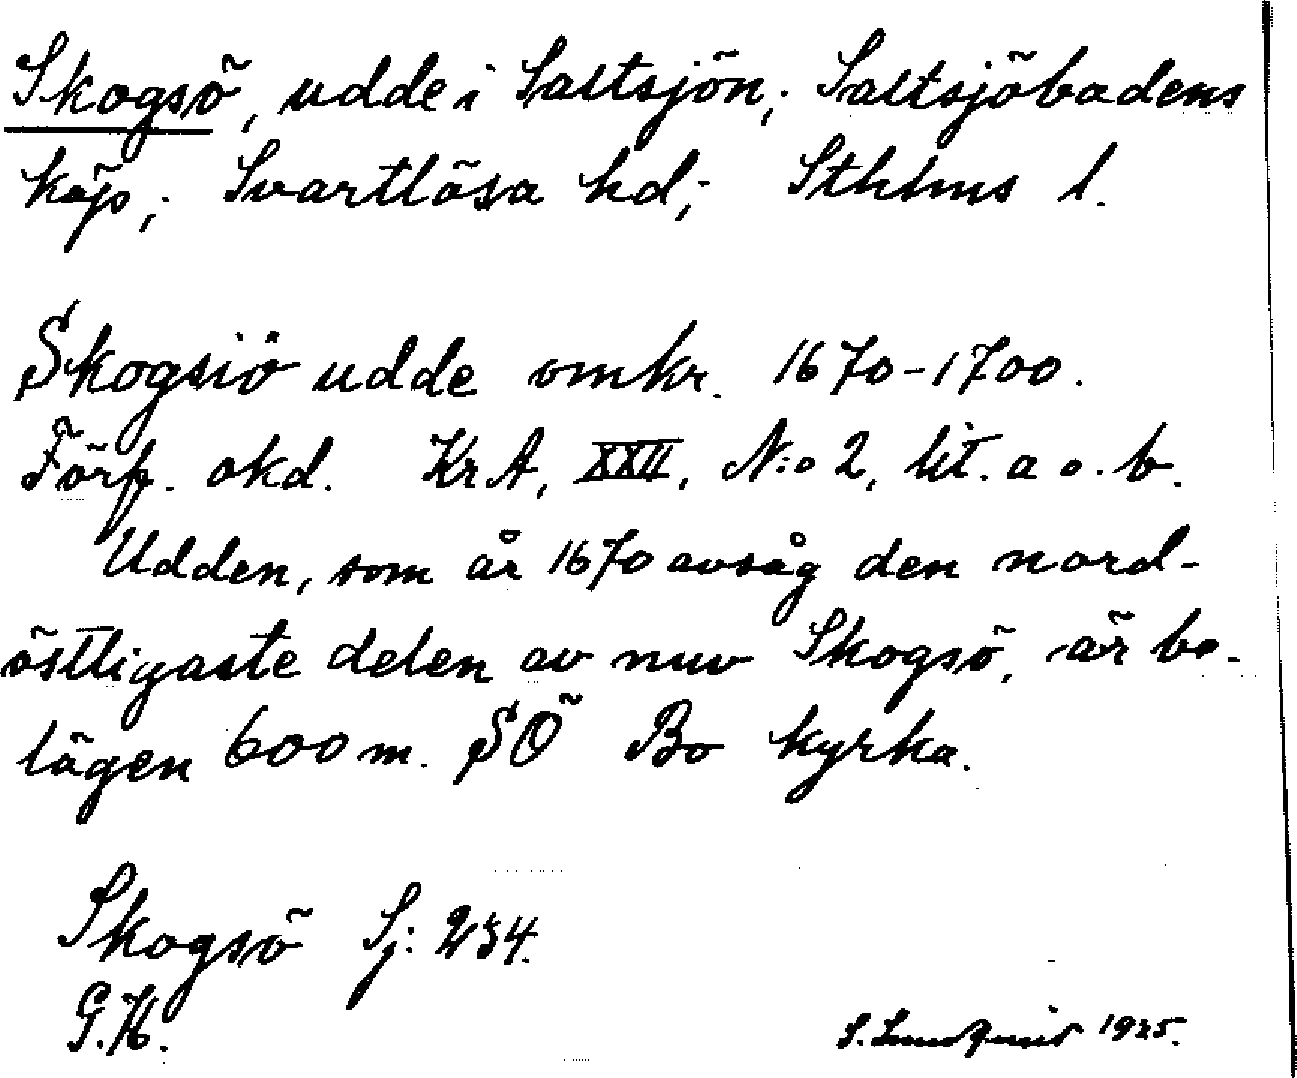 Skogsö, udde i Saltsjön; Saltsjöbadens
köp; Svartlösa hd; Sthlms l.
Skogsiö udde omkr. 1670-1700.
Förf. okd. Kr A, XXII, N:o 2, lit. a o. b.
Udden, som är 1670 avsåg den nord-
östligaste delen av nuv Skogsö, är be-
lägen 600 m. SÖ Bo kyrka.
Skogsö Sj: 234.
G.H.
S. Lundquist 1925.